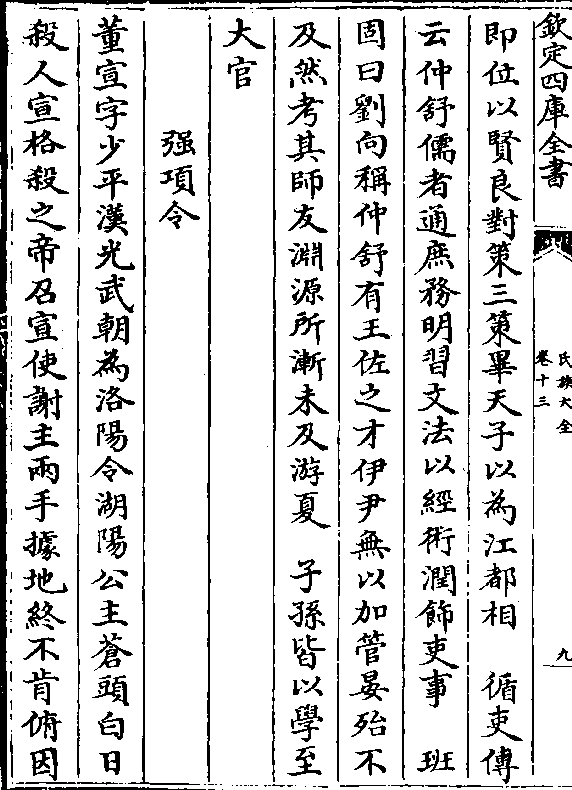 欽定四庫全書
氏族大全
卷十三
九
即位以賢良對策三策畢天子以為江都相　循吏傳
云仲舒儒者通庶務明習文法以經術潤飾吏事　班
固曰劉向稱仲舒有王佐之才伊尹無以加管晏殆不
及然考其師友淵源所漸未及游夏　子孫皆以學至
大官
强項令
董宣字少平漢光武朝為洛陽令湖陽公主蒼頭白日
殺人宣格殺之帝召宣使謝主兩手據地終不肯俯因